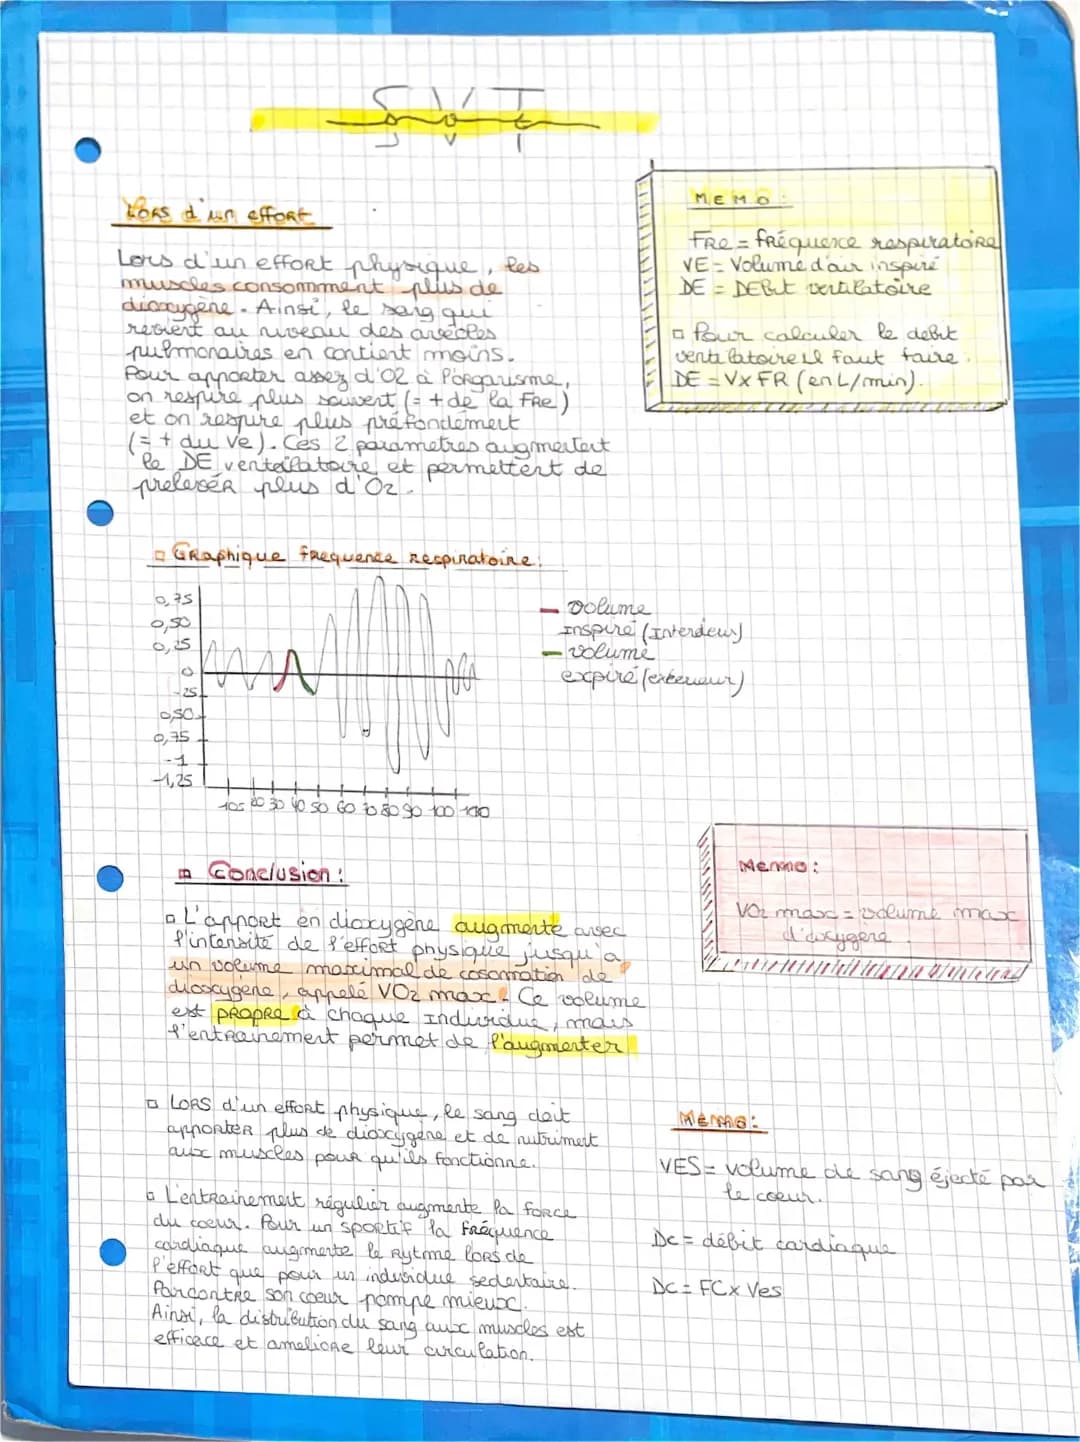 SVT
Lors d'un effort
Lors d'un effort physique, les
muscles consomment plus de
dioxygène. Ainsi, le sang qui
revient au niveau des avécles
pulmonaires en contient moins.
Pour apporter assez d'O2 à l'organisme,
on respire plus souvent (= + de la FRe)
et on respire plus préfondément
(= + du Ve). Ces 2 parametres augmentent
le DE ventilatoire et permettent de
prelever plus d'O2.
MEMO:
FRe = fréquence respiratoire
VE = Volume d'air inspiré
DE = DEbit ventilatoire
Pour calculer le debit
ventilatoire il faut faire.
DE = V x FR (en L/min).
Graphique frequence respiratoire:
0,75
0,50
0,25
0
-25
0,50
0,75
-1
-1,25
10s 20 30 40 50 60 70 80 90 100 110
volume
inspiré (Interdeur)
volume
expiré (exterieur)
Conclusion:
L'apport en dioxygène augmente avec
l'intensité de l'effort physique jusqu'a
un volume maximal de cosomation de
dioxygène, appelé VO2 max. Ce volume
est propre à chaque individue, mais
l'entrainement permet de l'augmenter
Memo:
VO2 max = volume max
d'oxygene
Lors d'un effort physique, le sang doit
apporter plus de dioxygène et de nutriment
aux muscles pour qu'ils fonctionne.
L'entrainement régulier augmente la force
du coeur. Pour un sportif la fréquence
cardiaque augmente le rytme lors de
l'effort que pour un individue sedentaire.
Parcontre son coeur pompe mieux.
Ainsi, la distribution du sang aux muscles est
efficace et ameliore leur circulation.
Memo:
VES = volume de sang éjecté par
le coeur.
Dc = débit cardiaque
Dc = FC x Ves